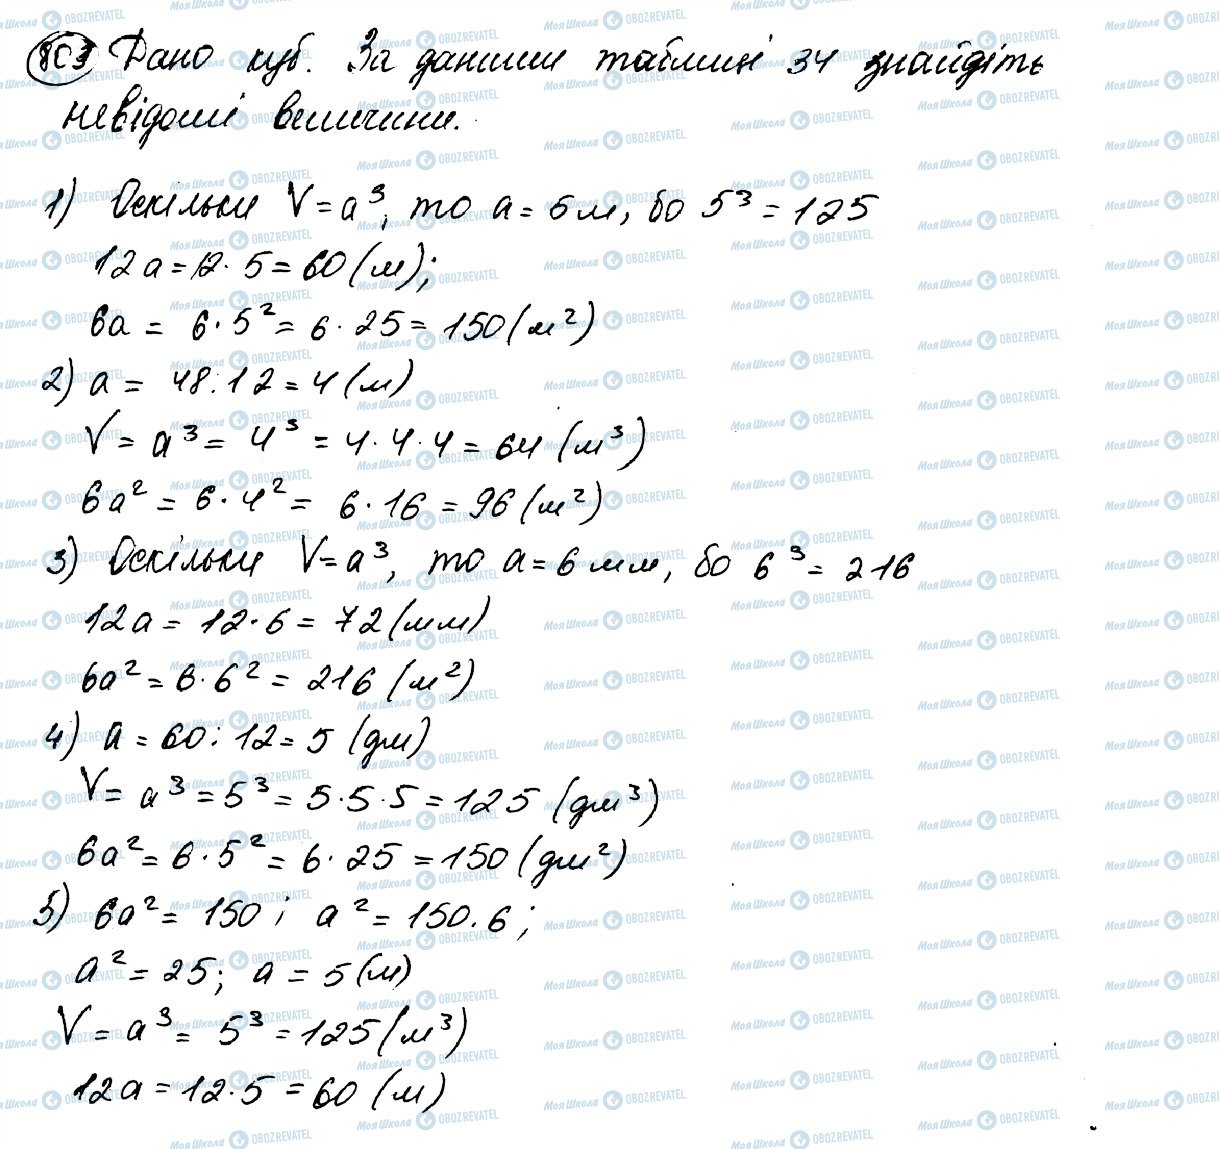 803 Дано куб. За даними таблиці 34 знайдіть
невідомі величини.
1) Оскільки V = a³, то a = 5 м, бо 5³ = 125
12a = 12 · 5 = 60 (м);
6a = 6 · 5² = 6 · 25 = 150 (м²)
2) a = 48 : 12 = 4 (м)
V = a³ = 4³ = 4 · 4 · 4 = 64 (м³)
6a² = 6 · 4² = 6 · 16 = 96 (м²)
3) Оскільки V = a³, то a = 6 мм, бо 6³ = 216
12a = 12 · 6 = 72 (мм)
6a² = 6 · 6² = 216 (м²)
4) a = 60 : 12 = 5 (дм)
V = a³ = 5³ = 5 · 5 · 5 = 125 (дм³)
6a² = 6 · 5² = 6 · 25 = 150 (дм²)
5) 6a² = 150; a² = 150 · 6;
a² = 25; a = 5 (м)
V = a³ = 5³ = 125 (м³)
12a = 12 · 5 = 60 (м)
Моя Школа OBOZREVATEL